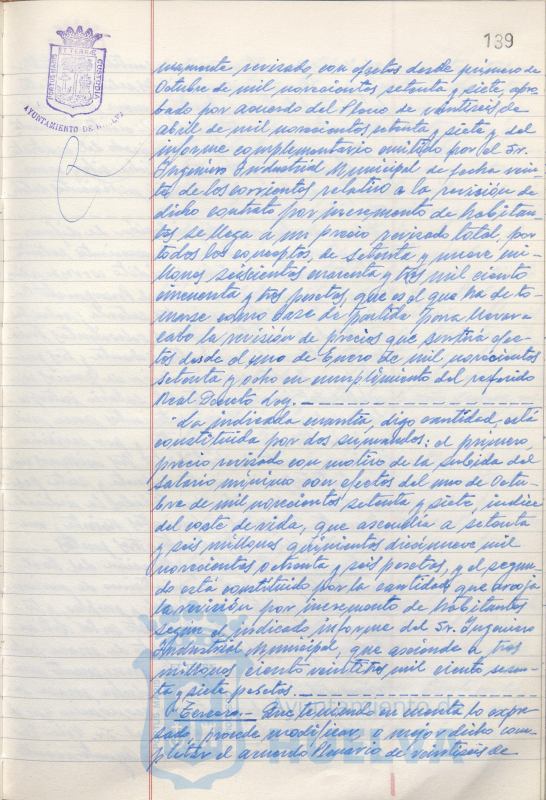 139
PORTUS MARIS ET TERRAE CUSTODIA
AYUNTAMIENTO DE HUELVA
mamente revisado, con efectos desde primero de
Octubre de mil novecientos setenta y siete, apro-
bado por acuerdo del Pleno de veintiseis de
abril de mil novecientos setenta y siete y del
informe complementario emitido por el Sr.
Ingeniero Industrial Municipal de fecha vein-
te de los corrientes relativo a la revisión de
dicho contrato por incremento de habitan-
tes se llega a un precio revisado total, por
todos los conceptos, de setenta y nueve mi-
llones seiscientos cuarenta y tres mil ciento
cincuenta y tres pesetas, que es el que ha de to-
marse como base de partida para llevar a
cabo la revisión de precios que surtirá efec-
tos desde el uno de Enero de mil novecientos
setenta y ocho en cumplimiento del referido
Real Decreto Ley. -
"La indicada cuantía, digo cantidad, está
constituida por dos sumandos: el primero
precio revisado con motivo de la subida del
salario mínimo con efectos del uno de Octu-
bre de mil novecientos setenta y siete, índice
del coste de vida, que ascendía a setenta
y seis millones quinientos diecinueve mil
novecientos ochenta y seis pesetas, y el segun-
do está constituido por la cantidad que arroja
la revisión por incremento de habitantes
según el indicado informe del Sr. Ingeniero
Industrial Municipal, que asciende a tres
millones ciento veintitres mil ciento sesen-
ta y siete pesetas. -
"Tercero.- Que teniendo en cuenta lo expre-
sado, procede modificar, o mejor dicho com-
pletar el acuerdo Plenario de veintiseis de
Ayuntamiento de